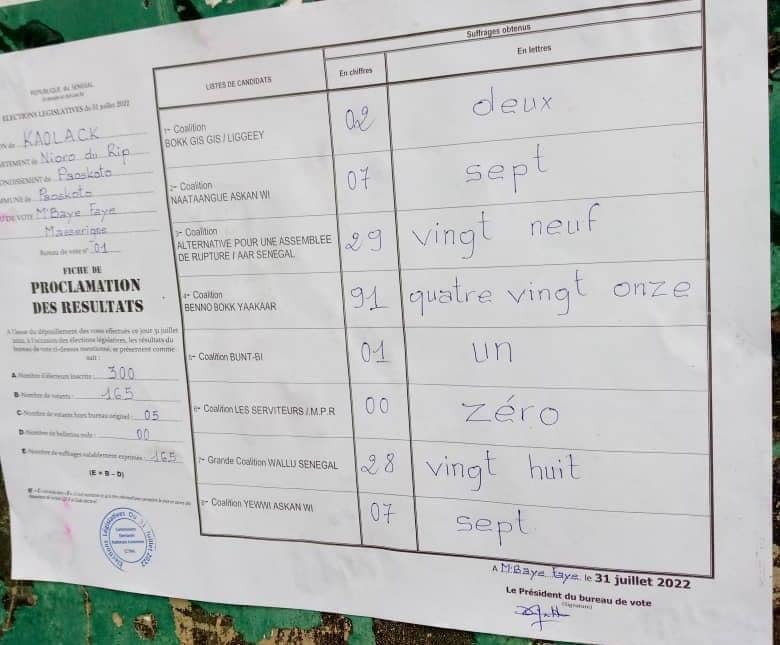 REPUBLIQUE du SENEGAL
ELECTIONS LEGISLATIVES du 31 juillet 2022
KAOLACK
ARTEMENT de Nioro du Rip
ONDISSEMENT de Paoskoto
MMUNE de Paoskoto
DE VOTE M'Baye Faye
Masserigne
Bureau de vote n° 01
FICHE DE
PROCLAMATION
DES RESULTATS
A l'issue du dépouillement des votes effectués ce jour 31 juillet
2022, à l'occasion des élections législatives, les résultats du
bureau de vote ci-dessus mentionné, se présentent comme
suit :
A-Nombre d'électeurs inscrits : 300
B-Nombre de votants : 165
C-Nombre de votants hors bureau originel : 05
D-Nombre de bulletins nuls : 00
E-Nombre de suffrages valablement exprimés : 165
(E = B - D)
Elections Législatives Du 31 juillet 2022
LISTES DE CANDIDATS
Suffrages obtenus
En chiffres
En lettres
1- Coalition
BOKK GIS GIS / LIGGEEY
02
deux
2- Coalition
NAATAANGUE ASKAN WI
07
sept
3- Coalition
ALTERNATIVE POUR UNE ASSEMBLEE
DE RUPTURE / AAR SENEGAL
29
vingt neuf
4- Coalition
BENNO BOKK YAAKAAR
91
quatre vingt onze
5- Coalition BUNT-BI
01
un
6- Coalition LES SERVITEURS / M.P.R
00
zéro
7- Grande Coalition WALLU SENEGAL
28
vingt huit
8- Coalition YEWWI ASKAN WI
07
sept
A M'Baye Faye le 31 juillet 2022
Le Président du bureau de vote
(Signature)